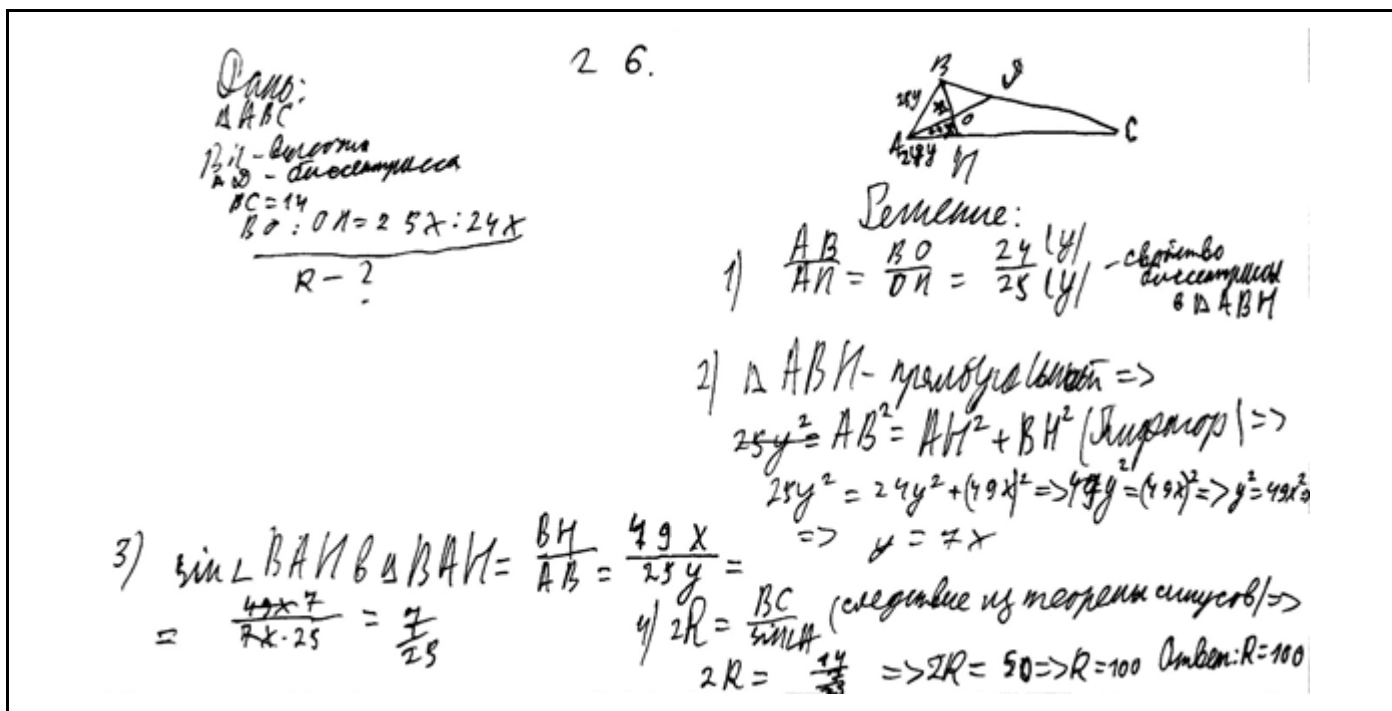 2 6.
Дано:
Δ ABC
BH - высота
AD - биссектрисса
BC = 14
BO : OH = 25x : 24x
R - ?
B D
25y x O
A 24y H C
Решение:
1) AB/AH = BO/OH = 24(y)/25(y) - свойство биссектрисы в Δ ABH
2) Δ ABH - прямоугольный =>
25y² = AB² = AH² + BH² (Пифагор) =>
25y² = 24y² + (49x)² => 49y² = (49x)² => y² = 49x² =>
=> y = 7x
3) sin∠BAH в Δ BAH = BH/AB = 49x/25y =
= 49x·7/7x·25 = 7/25
4) 2R = BC/sin∠A (следствие из теоремы синусов) =>
2R = 14/(7/25) => 2R = 50 => R = 100 Ответ: R = 100